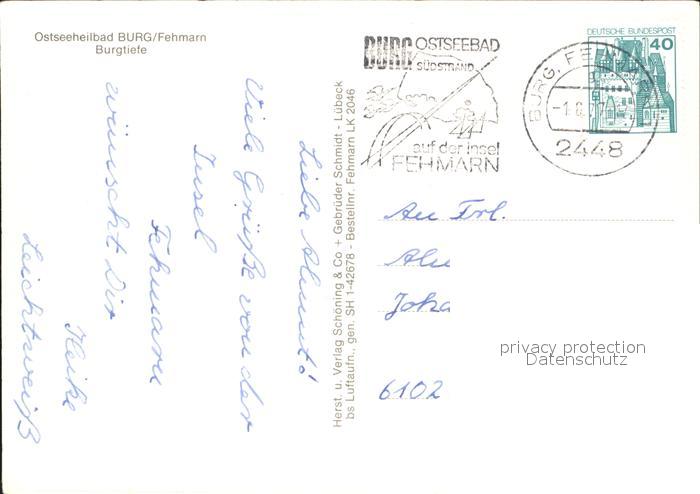 Ostseeheilbad BURG/Fehmarn
Burgtiefe
Liebe Almut!
Viele Grüße von der
Insel
Fehmarn
wünscht Dir
Heike
Leichtweiß
Herst. u. Verlag Schöning & Co + Gebrüder Schmidt - Lübeck
bs Luftaufn., gen. SH 1-42678 - Bestellnr. Fehmarn LK 2046
BURG OSTSEEBAD
SÜDSTRAND
auf der insel
FEHMARN
BURG, FEHMARN
2448
DEUTSCHE BUNDESPOST
40
An Frl.
Alm
Joha
6102
privacy protection
Datenschutz